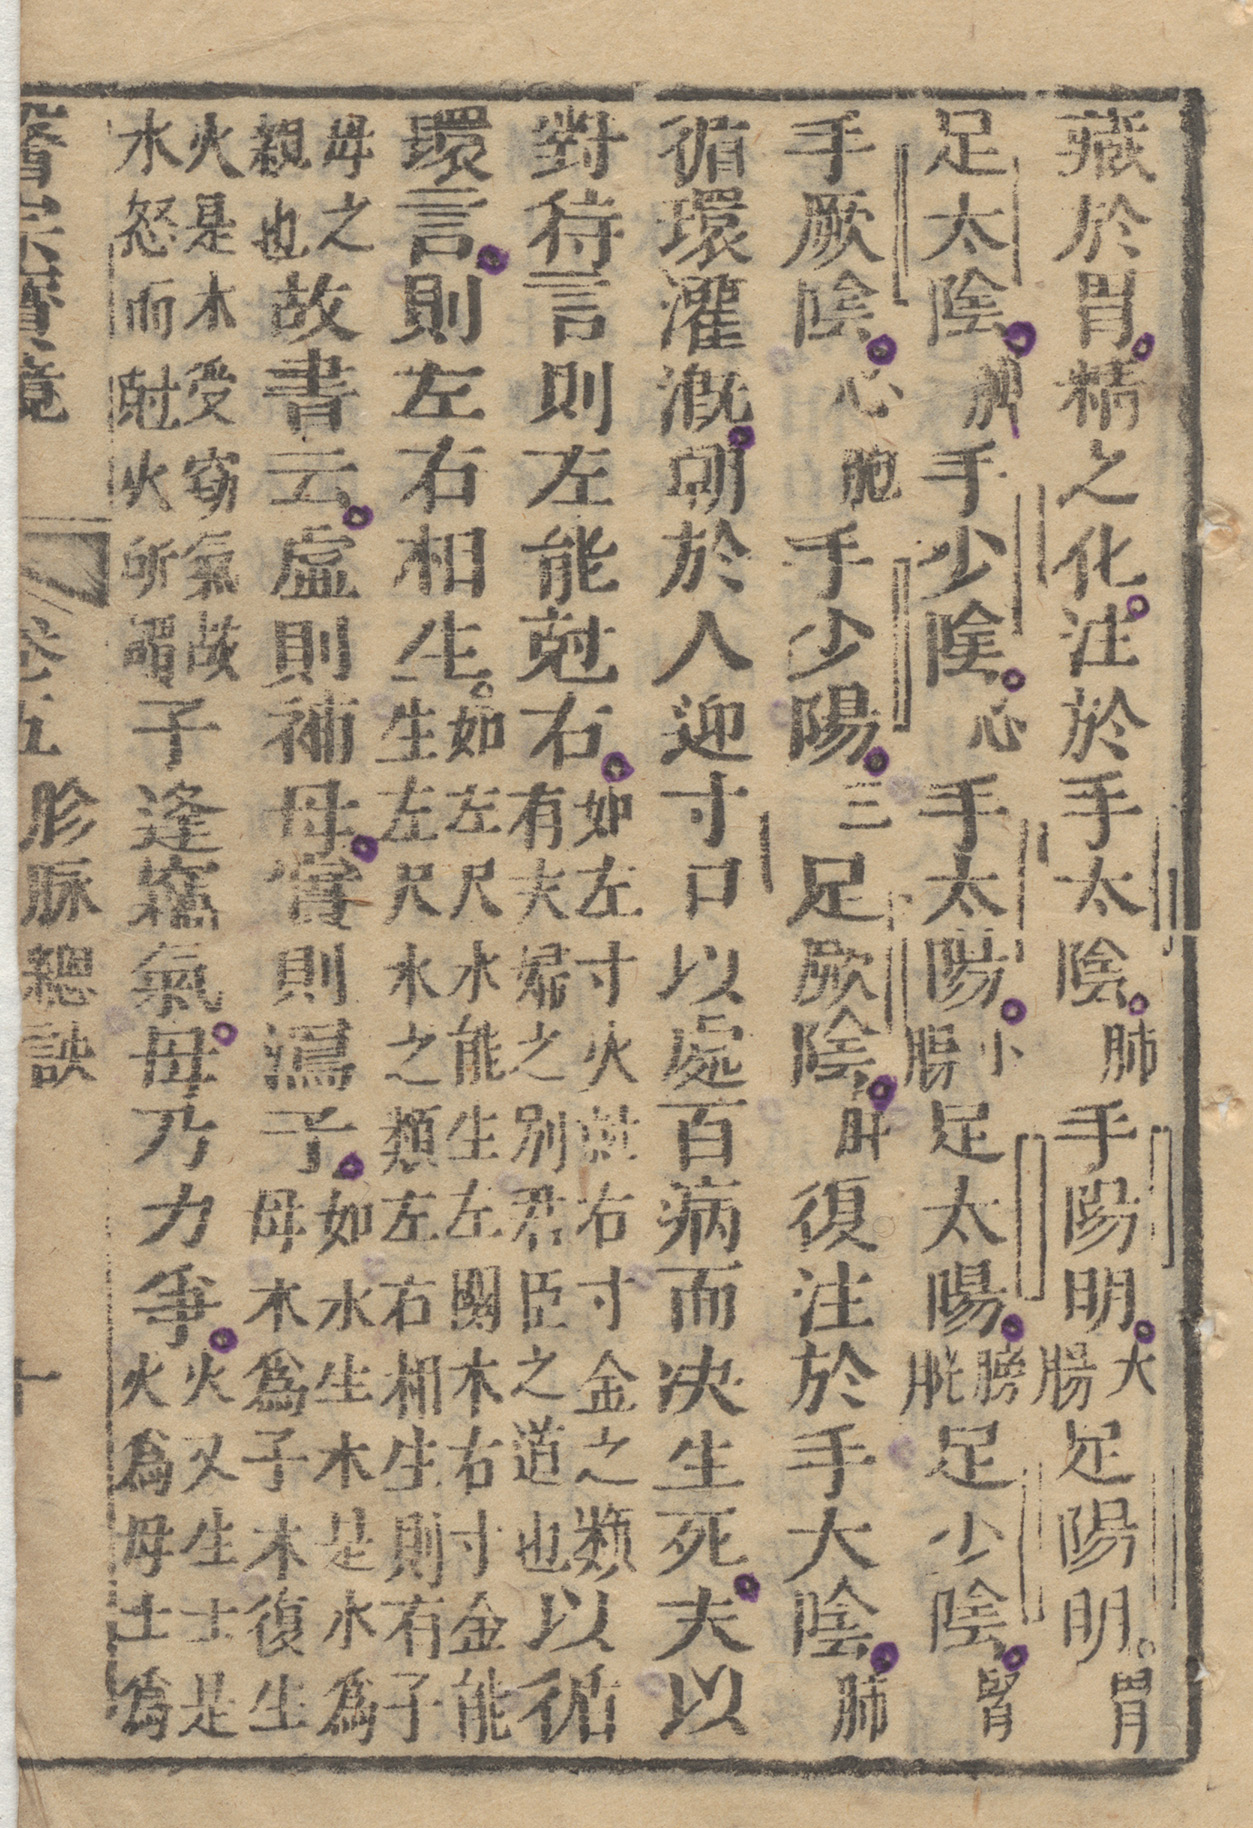 藏於胃精之化注於手太陰肺手陽明大腸足陽明胃
足太陰脾手少陰心手太陽小腸足太陽膀胱足少陰腎
手厥陰心胞手少陽三足厥陰肝復注於手大陰肺
循環灌溉朙於人迎寸口以處百病而决生死夫以
對待言則左能尅右如左寸火尅右寸金之類有夫婦之別君臣之道也以循
環言則左右相生如左尺水能生左關木右寸金能生左尺水之類左右相生則有子
母之親也故書云虛則補母實則瀉子如水生木是水為母木為子木復生
火是木受窃氣故水怒而尅火所謂子逢竊氣母乃力爭火又生土是火為母土為
醫宗寶鏡 卷五 胗脉總訣 十